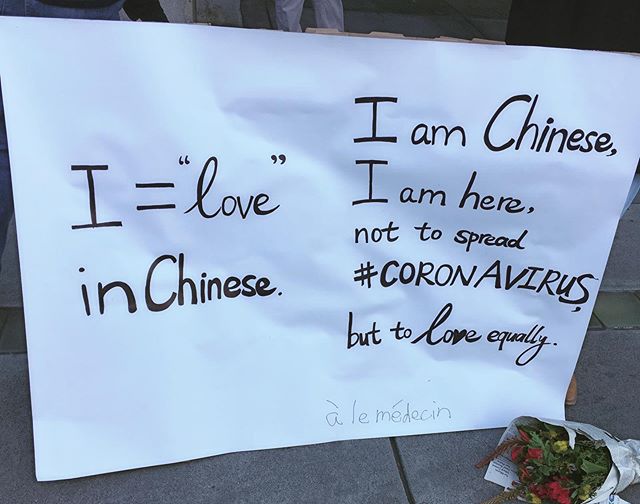 I = "love"
in Chinese.
I am Chinese,
I am here,
not to spread
#CORONAVIRUS,
but to love equally.
à le médecin